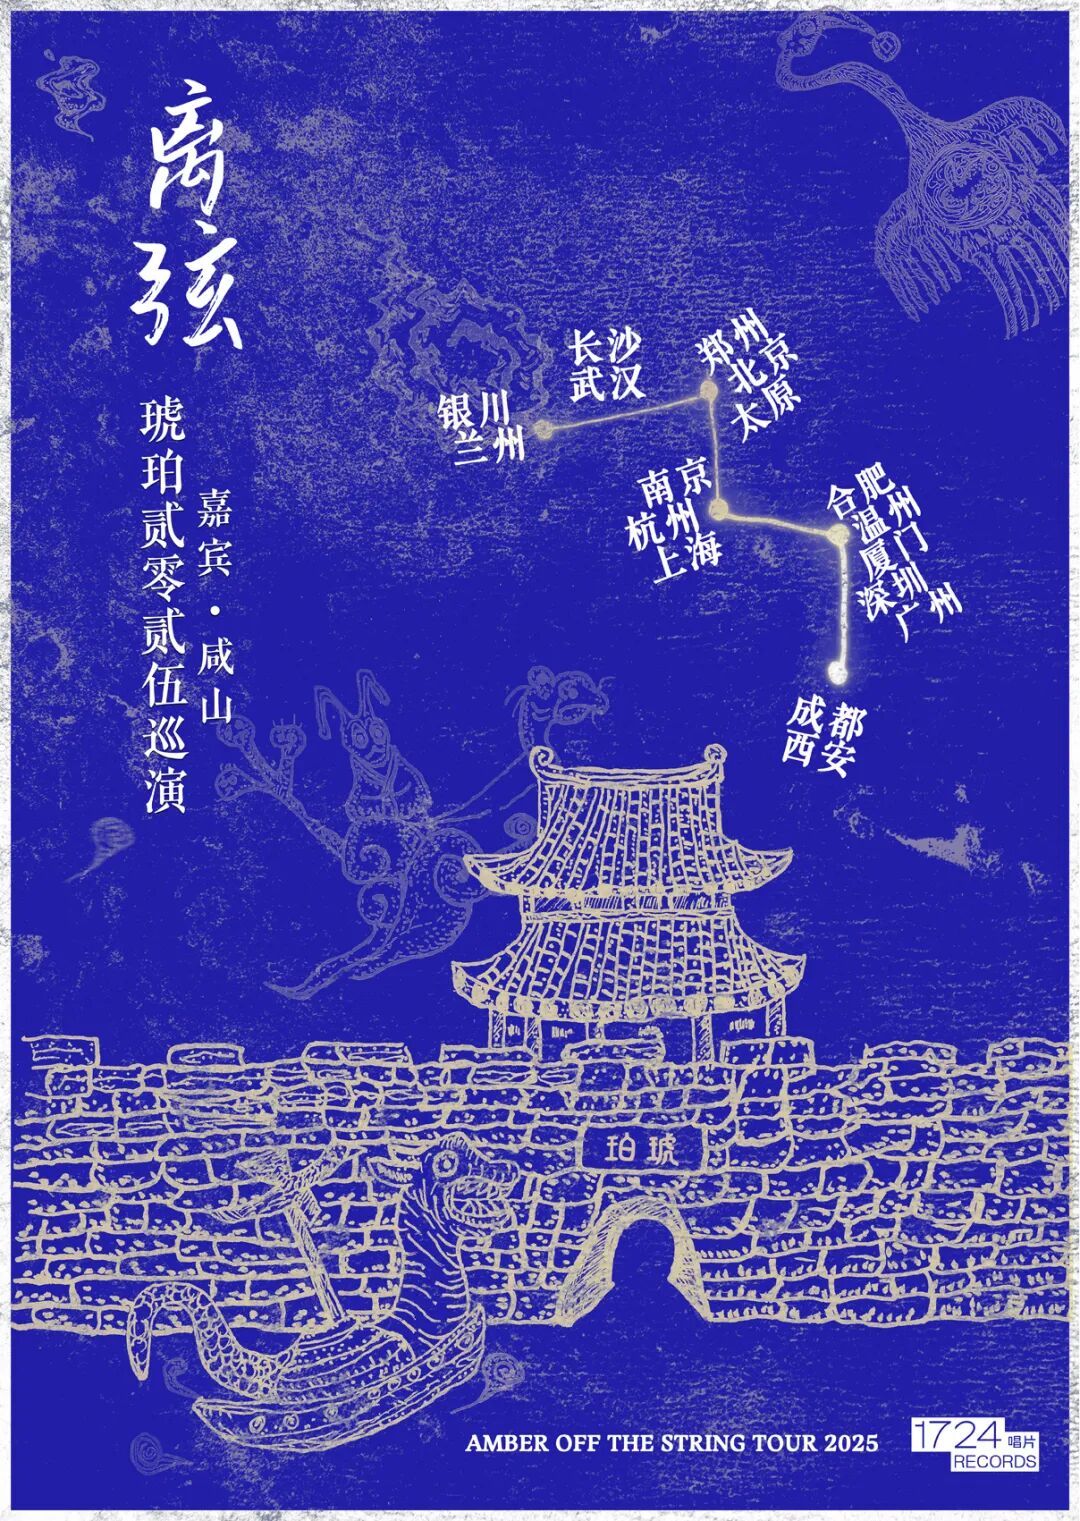 离弦
琥珀贰零贰伍巡演
嘉宾·咸山
银川
兰州
长沙
武汉
郑州
北京
太原
南京
杭州
上海
合肥
温州
厦门
深圳
广州
成都
西安
珀琥
AMBER OFF THE STRING TOUR 2025
1724 唱片
RECORDS